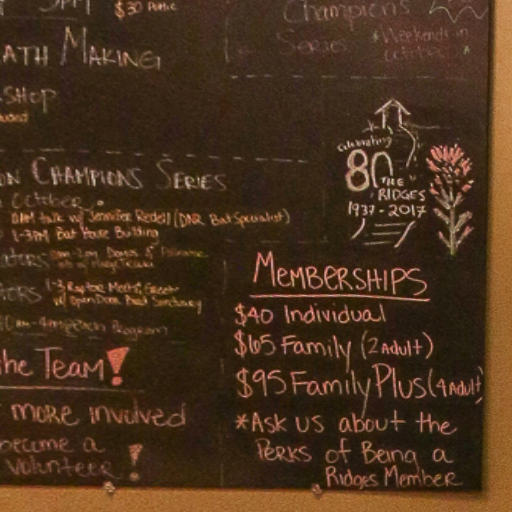 $30
ATH MAKING
SHOP
ON CHAMPIONS SERIES
October
talk w/ Jennifer Redell (DNR Bat Specialist)
1-3PM Bat House Building
1-3 Raptor Meet & Greet
w/ Open Door Bird Sanctuary
Program
the TEAM!
more involved
become a
volunteer!
Champions
Series
*Weekends in
October*
Celebrating
80
THE
RIDGES
1937-2017
MEMBERSHIPS
$40 Individual
$65 Family (2 Adult)
$95 Family Plus (4 Adult)
*ASK US about the
PERKS of Being a
Ridges Member